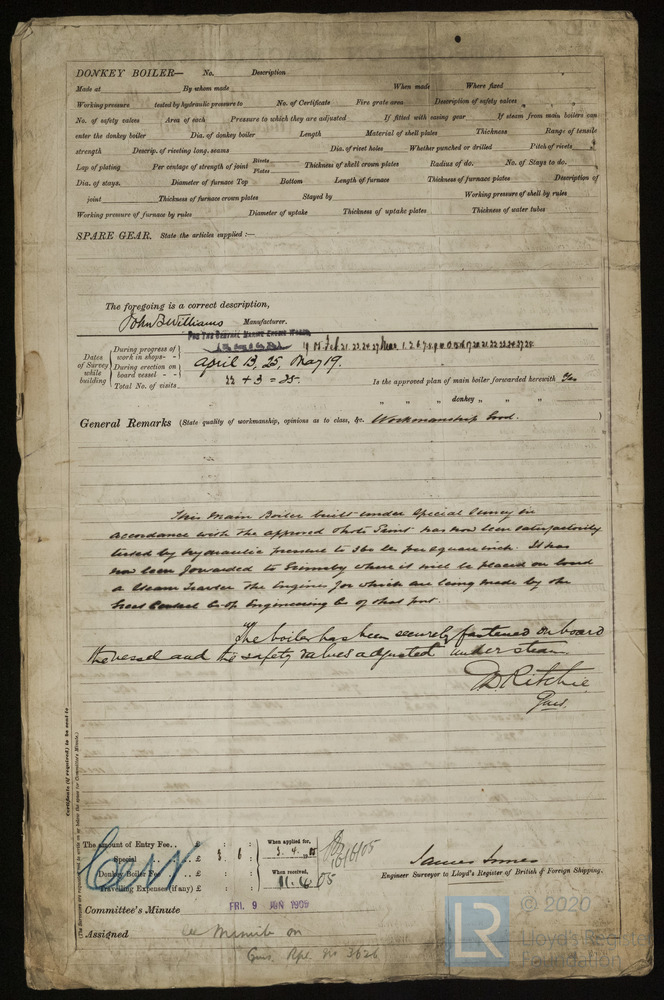 DONKEY BOILER— No. Description
Made at By whom made When made Where fixed
Working pressure tested by hydraulic pressure to No. of Certificate Fire grate area Description of safety valves
No. of safety valves Area of each Pressure to which they are adjusted If fitted with easing gear If steam from main boilers can
enter the donkey boiler Dia. of donkey boiler Length Material of shell plates Thickness Range of tensile
strength Descrip. of riveting long. seams Dia. of rivet holes Whether punched or drilled Pitch of rivets
Lap of plating Per centage of strength of joint Rivets Plates Thickness of shell crown plates Radius of do. No. of Stays to do.
Dia. of stays. Diameter of furnace Top Bottom Length of furnace Thickness of furnace plates Description of
joint Thickness of furnace crown plates Stayed by Working pressure of shell by rules
Working pressure of furnace by rules Diameter of uptake Thickness of uptake plates Thickness of water tubes
SPARE GEAR. State the articles supplied :—
The foregoing is a correct description,
John B Williams Manufacturer.
FOR THE CENTRAL MARINE ENGINE WORKS
Dates of Survey while building
During progress of work in shops - -
During erection on board vessel - - April 13, 25, May 19.
Total No. of visits 32 + 3 = 35. Is the approved plan of main boiler forwarded herewith Yes
" " " donkey " " "
General Remarks (State quality of workmanship, opinions as to class, &c. Workmanship Good.)
This Main Boiler built under Special Survey in
accordance with the approved Photo Print has now been satisfactorily
tested by hydraulic pressure to 360 lbs per square inch. It has
now been forwarded to Grimsby where it will be placed on board
a Steam Trawler the Engines for which are being made by the
Great Central Co-op Engineering Co of that port.
The boiler has been securely fastened on board
the vessel and the safety valves adjusted under steam.
D. Ritchie
Gms.
Certificate (if required) to be sent to
The amount of Entry Fee . . £ : : When applied for,
Special . . £ 3 : 6 : 3.4.05
Donkey Boiler Fee £ : : When received,
Travelling Expenses (if any) £ : : 11.4.05
16/6/05
James Innes
Engineer Surveyor to Lloyd's Register of British & Foreign Shipping.
Committee's Minute FRI. 9 JUN 1905
Assigned See Minute on
Gms. Rpt. No 3626
LR
© 2020
Lloyd's Register
Foundation